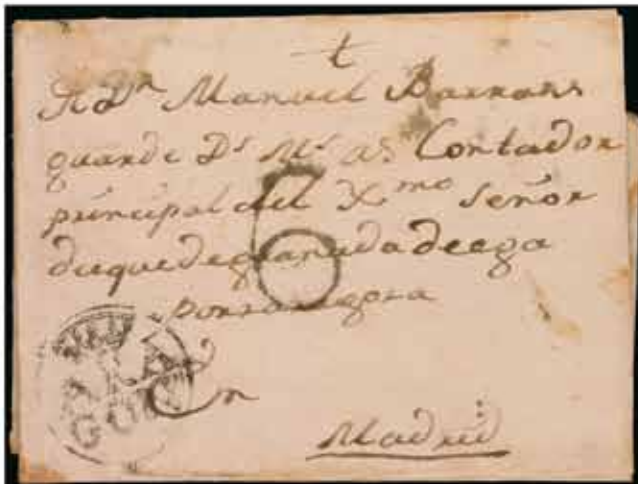 t
A Dn Manuel Barrans
guarde Ds Ms as Contador
principal del Xmo Señor
duque de granada de ega
6
En
Madrid